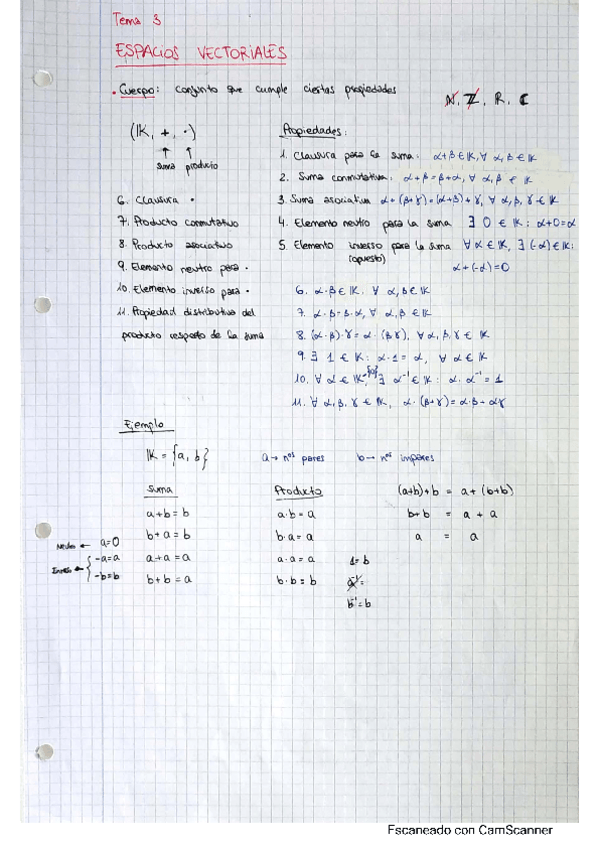 Tema 3
ESPACIOS VECTORIALES
• Cuerpo: conjunto que cumple ciertas propiedades
N, Z, R, C
(K, +, ·)
Propiedades:
suma producto
1. Clausura para la suma: α+β ∈ K, ∀ α, β ∈ K
2. Suma conmutativa: α+β=β+α, ∀ α, β ∈ K
3. Suma asociativa α+(β+γ)=(α+β)+γ, ∀ α, β, γ ∈ K
4. Elemento neutro para la suma ∃ 0 ∈ K: α+0=α
5. Elemento inverso para la suma ∀ α ∈ K, ∃ (-α) ∈ K:
(opuesto)
α+(-α)=0
6. Clausura ·
7. Producto conmutativo
8. Producto asociativo
9. Elemento neutro para ·
10. Elemento inverso para ·
11. Propiedad distributiva del
producto respecto de la suma
6. α·β ∈ K. ∀ α, β ∈ K
7. α·β=β·α, ∀ α, β ∈ K
8. (α·β)·γ=α·(β·γ), ∀ α, β, γ ∈ K
9. ∃ 1 ∈ K: α·1=α, ∀ α ∈ K
10. ∀ α ∈ K-{0}, ∃ α⁻¹ ∈ K: α·α⁻¹=1
11. ∀ α, β, γ ∈ K, α·(β+γ)=α·β+αγ
Ejemplo
K={a, b} a→ nºs pares b→ nºs impares
Suma Producto (a+b)+b = a+(b+b)
a+b=b a·b=a b+b = a+a
b+a=b b·a=a a = a
Neutro ← a=0
a+a=a a·a=a 1=b
-a=a
b+b=a b·b=b a⁻¹=
-b=b
b⁻¹=b
Escaneado con CamScanner